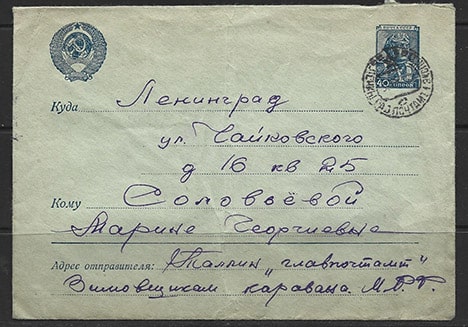 Куда Ленинград
ул. Чайковского
д 16 кв 25
Кому Соловьёвой
Марине Георгиевне
Адрес отправителя: Таллин "главпочтамт"
Зимовщикам каравана. М.Р.Т.
40 КОПЕЕК